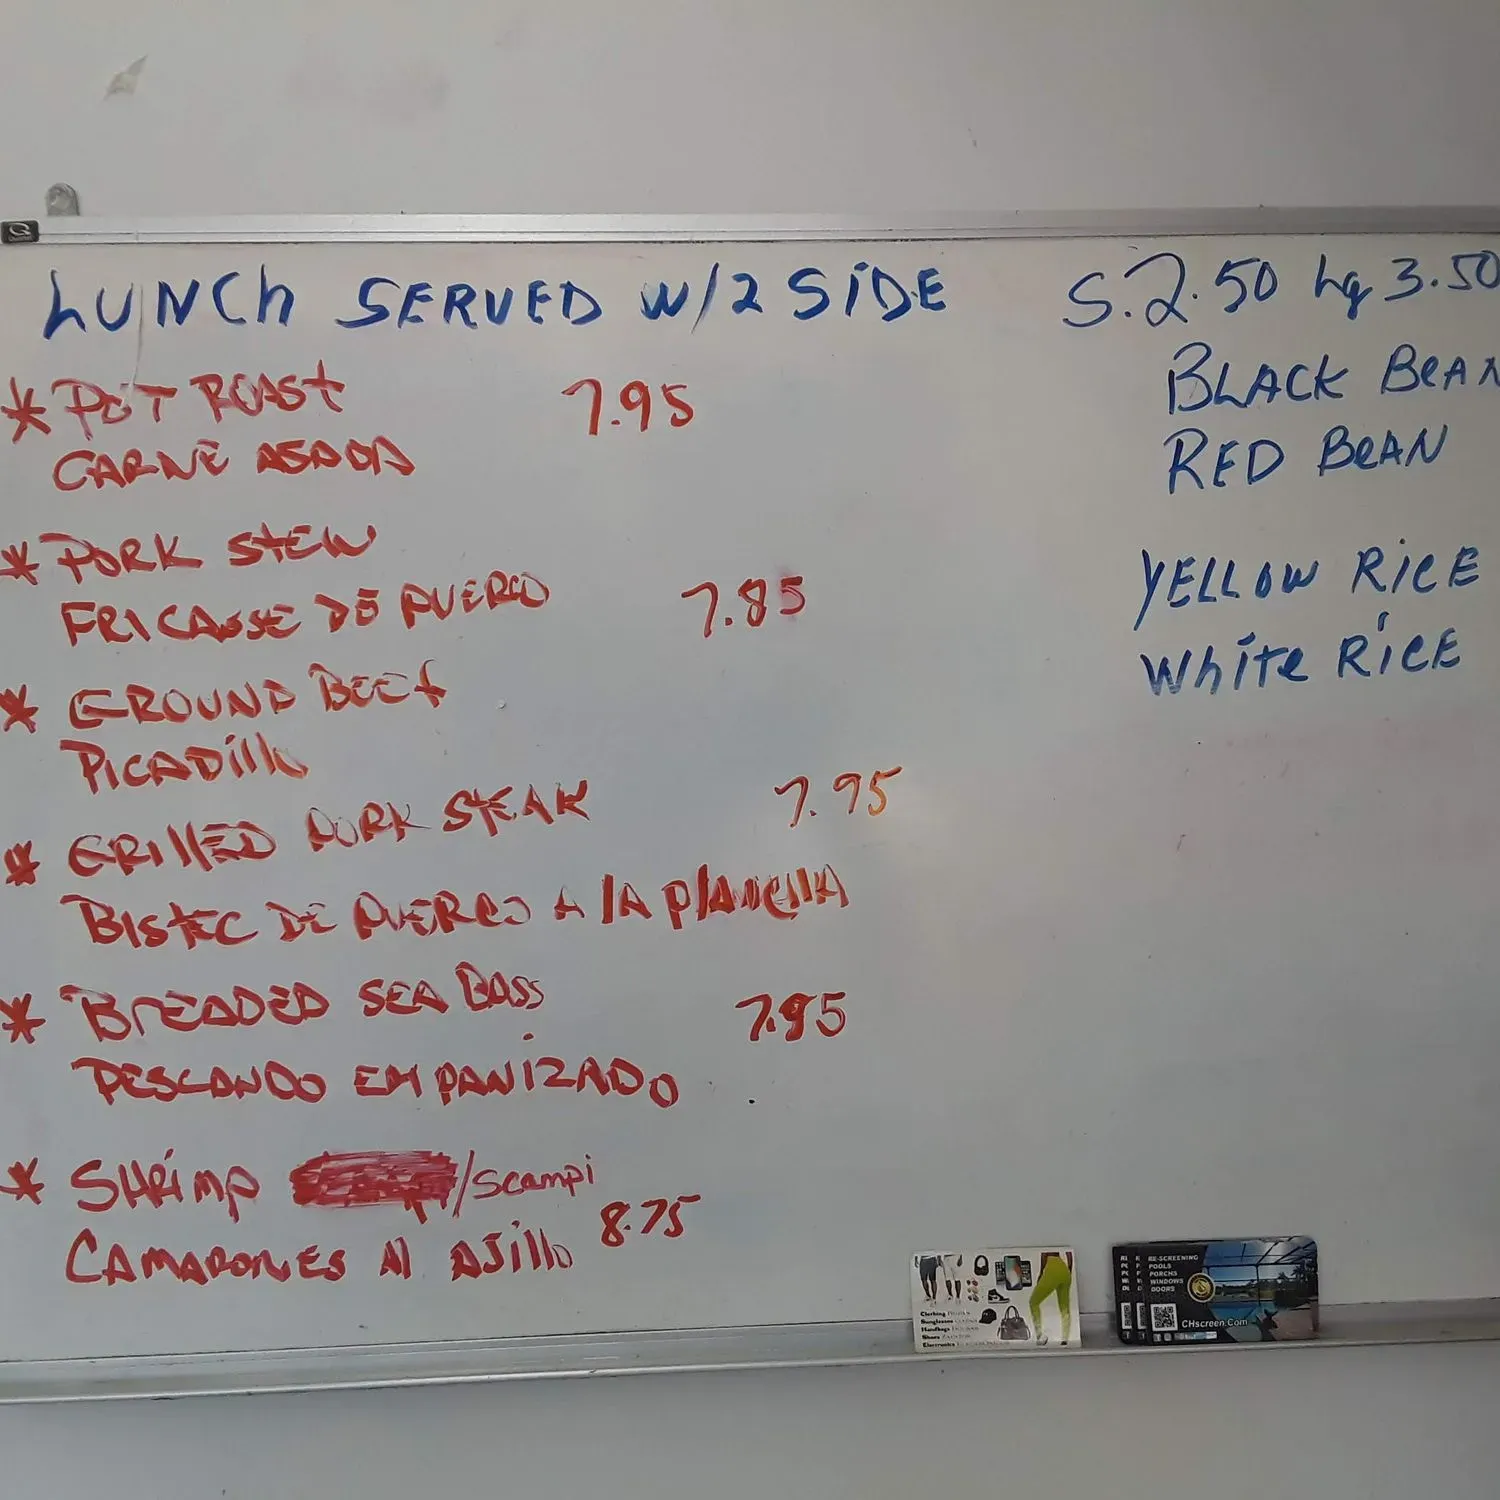 LUNCh SERVED W/2 SiDE
S. 2.50 Lg 3.50
* POT ROASt 7.95
CARNE ASADA
* PORK StEW
FRICASSE DE PUERCO 7.85
* GROUND BEEf
PICADillo
* GRillED PORK STEAK 7.95
BIStEC DE PUERCO A lA PlANCHA
* BrEADED SEA BASS 7.95
PESCANDO EMPANiZADO
* SHRiMP /Scampi
CAMARONES Al AJillo 8.75
BLACK BeAN
RED BeAN
YELLOW RiCE
WhitE RiCE
Clothing
Sunglasses
Handbags
Shoes
Electronics
RE-SCREENING
POOLS
PORCHS
WINDOWS
DOORS
CHscreen.Com